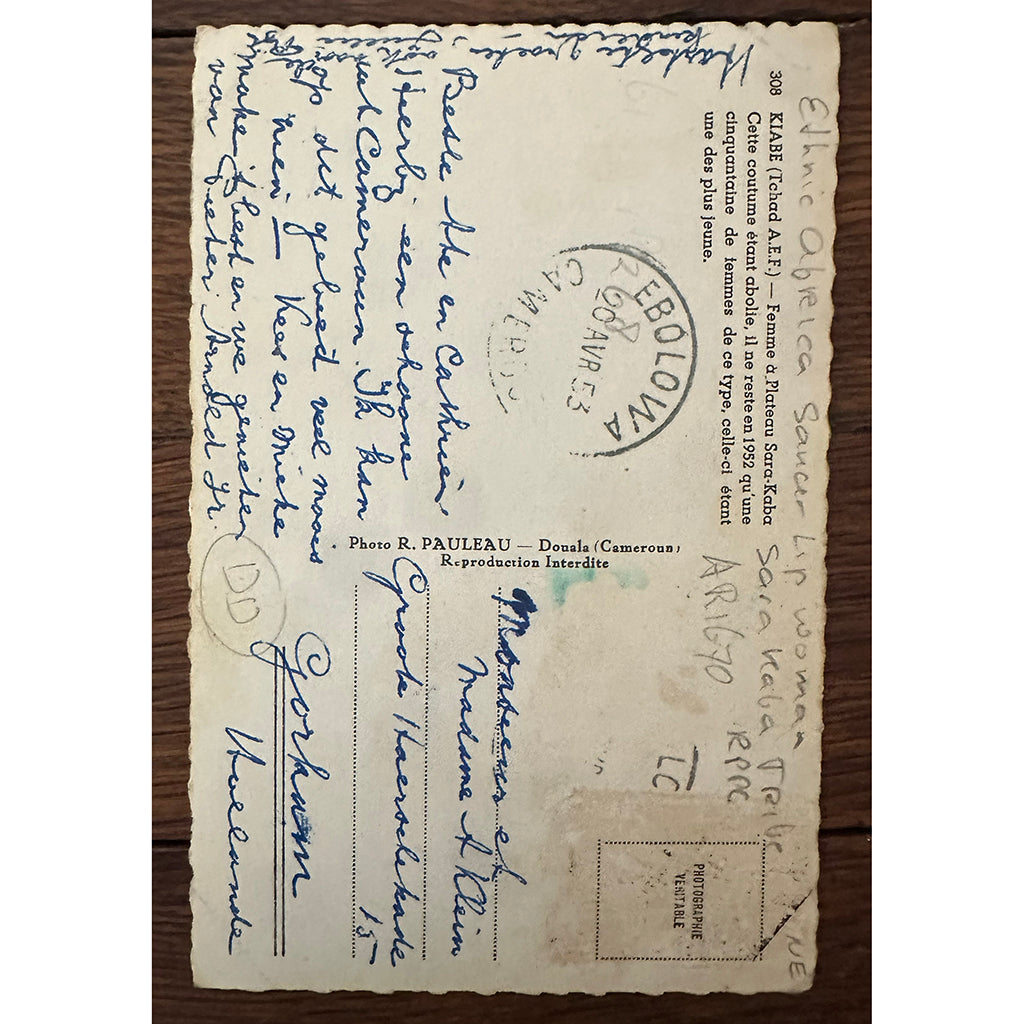 Ethnic Africa Saucer Lip woman
Sara Kaba Tribe
AR1670
RPPC
TC
NE
308 KIABE (Tchad A.E.F.) — Femme à Plateau Sara-Kaba
Cette coutume étant abolie, il ne reste en 1952 qu'une
cinquantaine de femmes de ce type, celle-ci étant
une des plus jeune.
EBOLOWA
20 AVR 53
268
CAMEROUN
PHOTOGRAPHIE
VÉRITABLE
Hartelijke groeten,
Beste Ate en Cathrien
Hierbij een schoone
uit Cameroun. Ik kan
op dit gebied veel moois
zien — Kees en Mieke
make 't best en we genieten
van Pieter Arnold Jr.
Photo R. PAULEAU — Douala (Cameroun)
Reproduction Interdite
Monsieur et
Madame A Klein
Groote Haarsekade
15
Gorkum
Hollande
DD